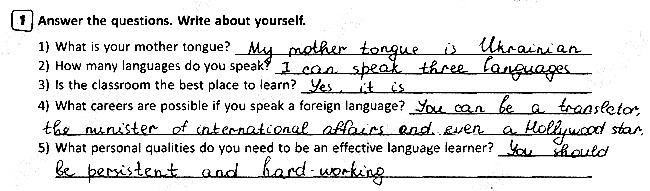 1 Answer the questions. Write about yourself.
1) What is your mother tongue? My mother tongue is Ukrainian
2) How many languages do you speak? I can speak three languages
3) Is the classroom the best place to learn? Yes, it is
4) What careers are possible if you speak a foreign language? You can be a translator,
the minister of international affairs and even a Hollywood star.
5) What personal qualities do you need to be an effective language learner? You should
be persistent and hard-working